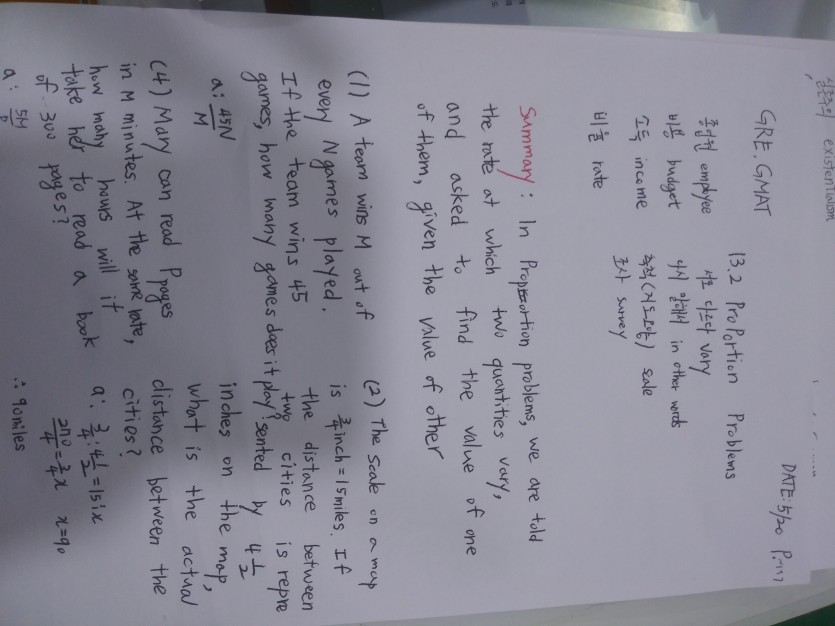 실존주의 existentialism
DATE: 5/20
GRE. GMAT
13.2 Proportion Problems
종업원 employee
서로 다르다 vary
비용 budget
다시 말해서 in other words
소득 income
축척(지도모양) scale
비율 rate
조사 survey
Summary: In Proportion problems, we are told
the rate at which two quantities vary,
and asked to find the value of one
of them, given the value of other
(1) A team wins M out of
every N games played.
If the team wins 45
games, how many games does it play?
a: 45N/M
(2) The scale on a map
is 3/4 inch = 15 miles. If
the distance between
two cities is repre
sented by 4 1/2
inches on the map,
what is the actual
distance between the
cities?
a: 3/4 : 4 1/2 = 15 : x
270/4 = 3/4 x x=90
∴ 90 miles
(4) Mary can read P pages
in M minutes. At the same rate,
how many hours will it
take her to read a book
of 300 pages?
a: 5M/P